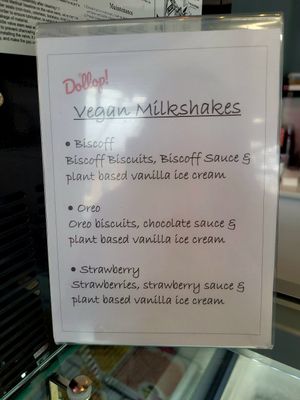 Maintenance
Dollop!
Vegan Milkshakes
• Biscoff
Biscoff Biscuits, Biscoff Sauce &
plant based vanilla ice cream
• Oreo
Oreo biscuits, chocolate sauce &
plant based vanilla ice cream
• Strawberry
Strawberries, strawberry sauce &
plant based vanilla ice cream